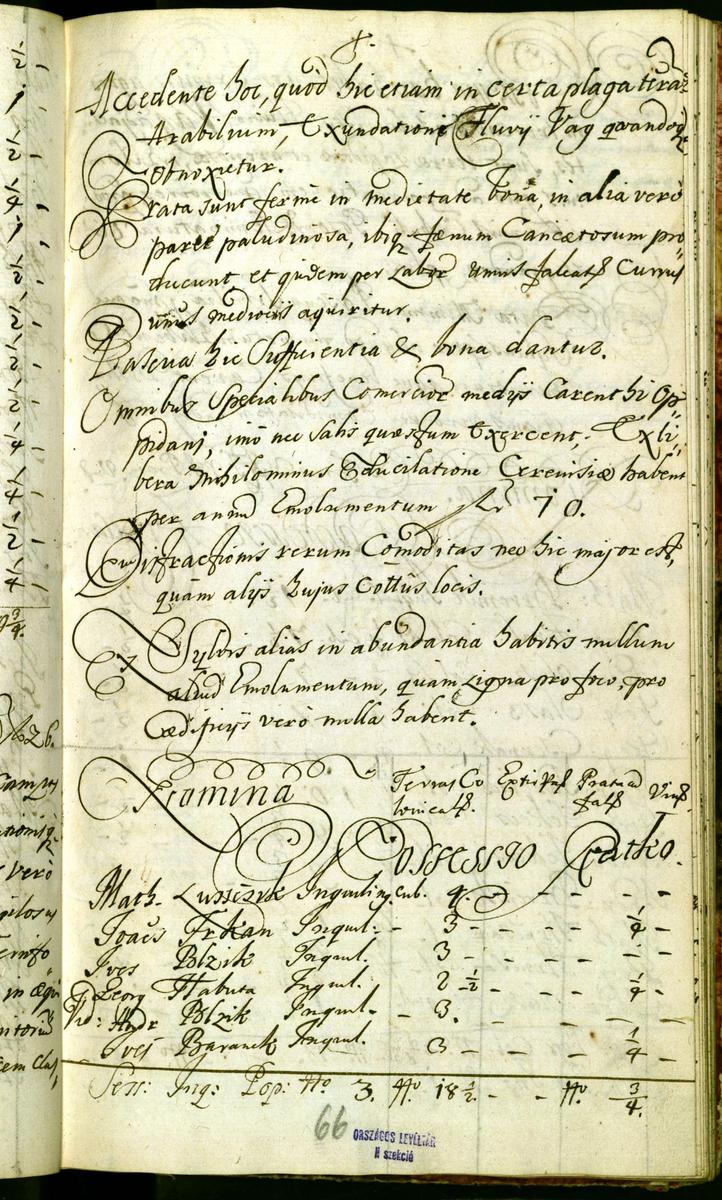 8.
Accedente hoc, quod hic etiam in certa plaga terar̃
Arabilium, Exundationi Fluvij Vag quandoq̃
obnoxietur.
Prata sunt ferme in medietate bona, in alia verò
parte paludinosa, ibiq̃ fænum Caricetosum pro„
ducunt et quidem per Labor̃ unius falcat̃ Currus
unus mediocris aquiritur.
Pascua hic Sufficientia & bona dantur.
Omnibus Specialibus Comercior̃ medijs Carent hi Op„
pidani, imò nec Salis quæstum Exercent, Ex li„
bera Nihilominus Educilatione Cerevisiæ habent
per annũ Emolumentum f 70.
Distractionis rerum Comoditas neo hic major est,
quàm alijs hujus Cottûs locis.
Ex Sylvis aliàs in abundantia habitis nullum
aliud Emolumentum, quàm Ligna pro foco, pro
ædificijs verò nulla habent.
Nomina Terras Co Extir Pratar̃
lonical falc
Possessio Pratko.
Math. Inquilin, cub. 4. - - - - -
Joães Trkan Inquil: - 3 - - - 1/4 -
Ives Blzik Inquil. 3 - - - - -
Georg Habuta Inquil. 2 1/2 - - 1/4 -
Vid: Andr Blzik Inquil - 3. - - - -
Ives Baranek Inquil. 3 - - - 1/4 -
Sess: Inq: Pop: No 3. No 18 1/2. - - No 3/4.
66
ORSZÁGOS LEVÉLTÁR
II szekció
2/1 -
1 -
2/1 -
4/1 -
1 -
2/1 -
2/1 -
2/1 -
2/1 -
4/1 -
4/1 -
2/1 -
4/1 -
3/4.
verò
in æqui